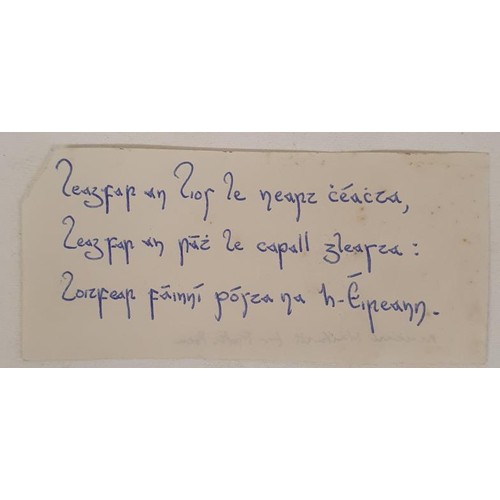 Leagfar an Lios le neart ċéaċta,
Leagfar an ráṫ le capall gleasta:
Loitfear fáinní pósta na h-Éireann.